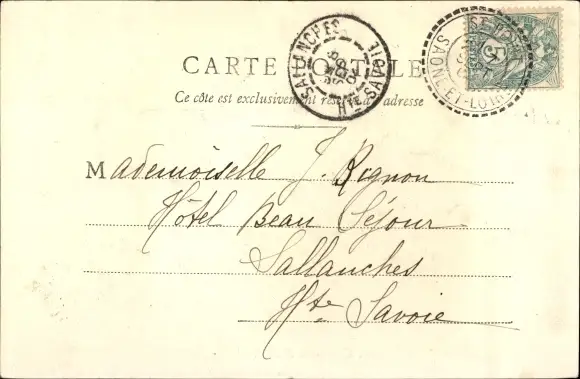 CARTE POSTALE
Ce côté est exclusivement réservé à l'adresse
SALLANCHES
Hte SAVOIE
SAONE-ET-LOIRE
5
Mademoiselle J. Rignon
Hôtel Beau Séjour
Sallanches
Hte Savoie